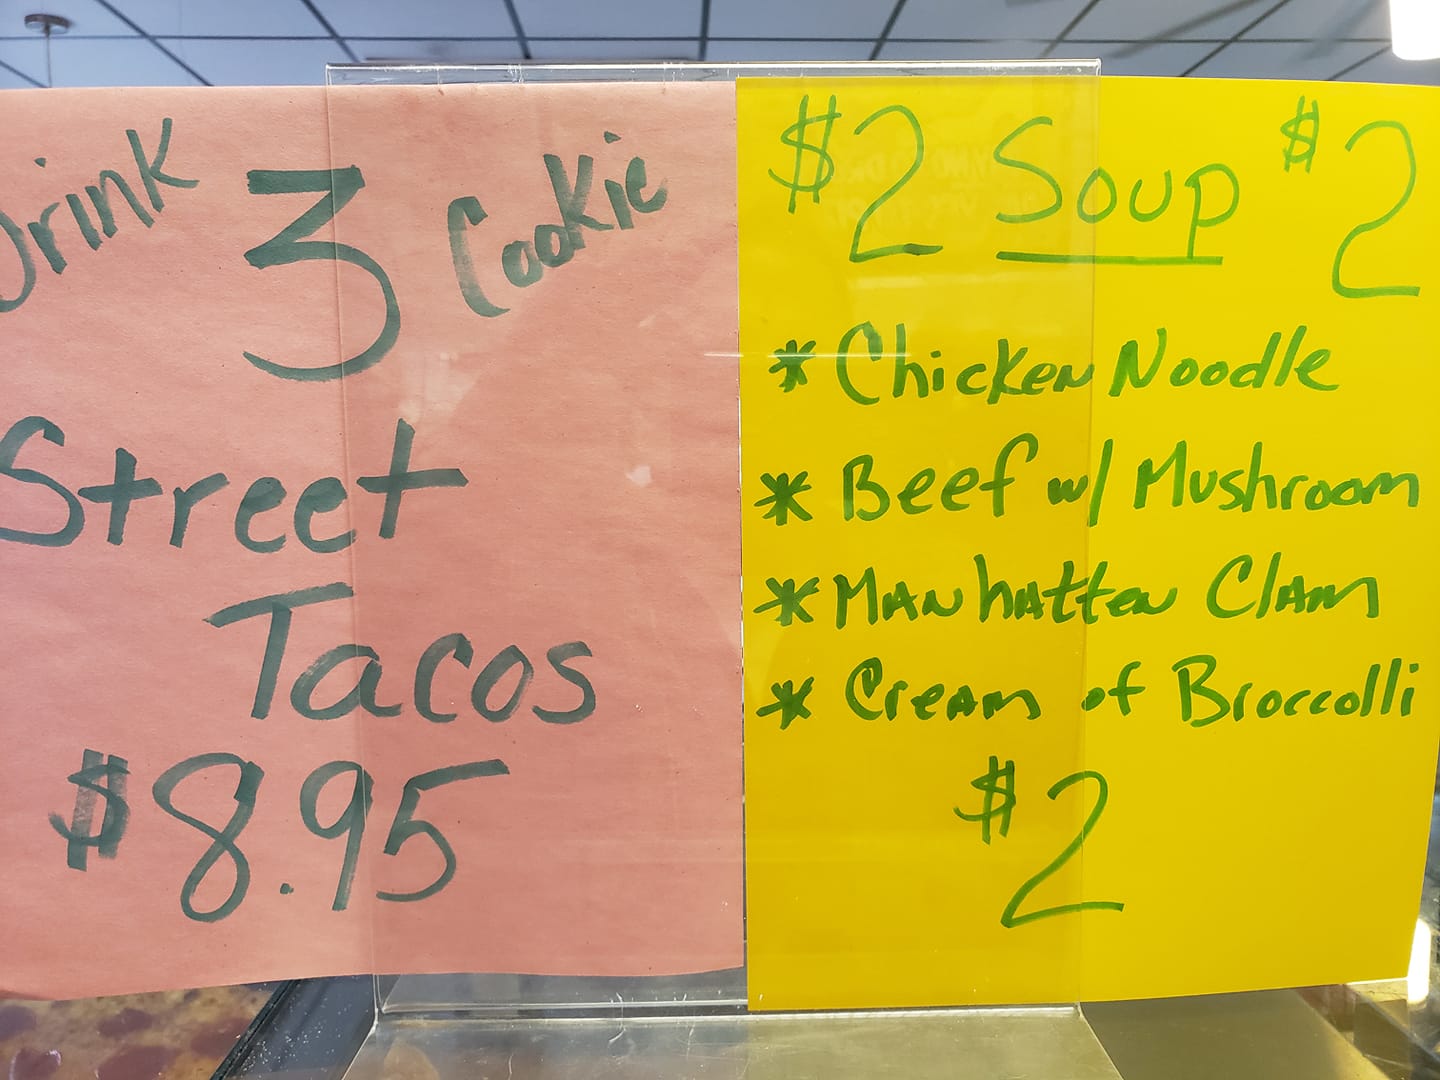 Drink 3 Cookie
Street
Tacos
$8.95
$2 Soup $2
* Chicken Noodle
* Beef w/ Mushroom
* Manhatten Clam
* Cream of Broccolli
$2